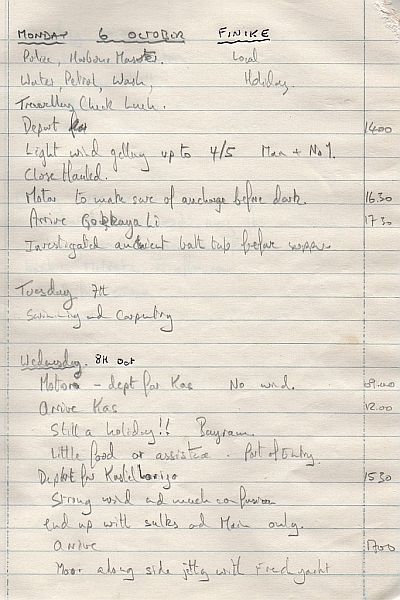 MONDAY 6 OCTOBER FINIKE
Police, Harbour Master Local
Water, Petrol, Wash, Holiday
Travelling Check Lunch.
Depart for 1400
Light wind getting up to 4/5 Main + No 1.
Close Hauled.
Motor to make sure of anchorage before dark. 16.30
Arrive Gokkaya Li 17 30
Investigated ancient before supper
Tuesday 7th
Swimming and Carpentry
Wednesday. 8th Oct
Motoring - dept for Kas No wind. 09.00
Arrive Kas 12.00
Still a holiday!! Bayram.
Little food or assistance. Port of Entry.
Depart for Kastellorizo 1530
Strong wind and much confusion
end up with and Main only.
arrive 1700
Moor along side jetty with French yacht